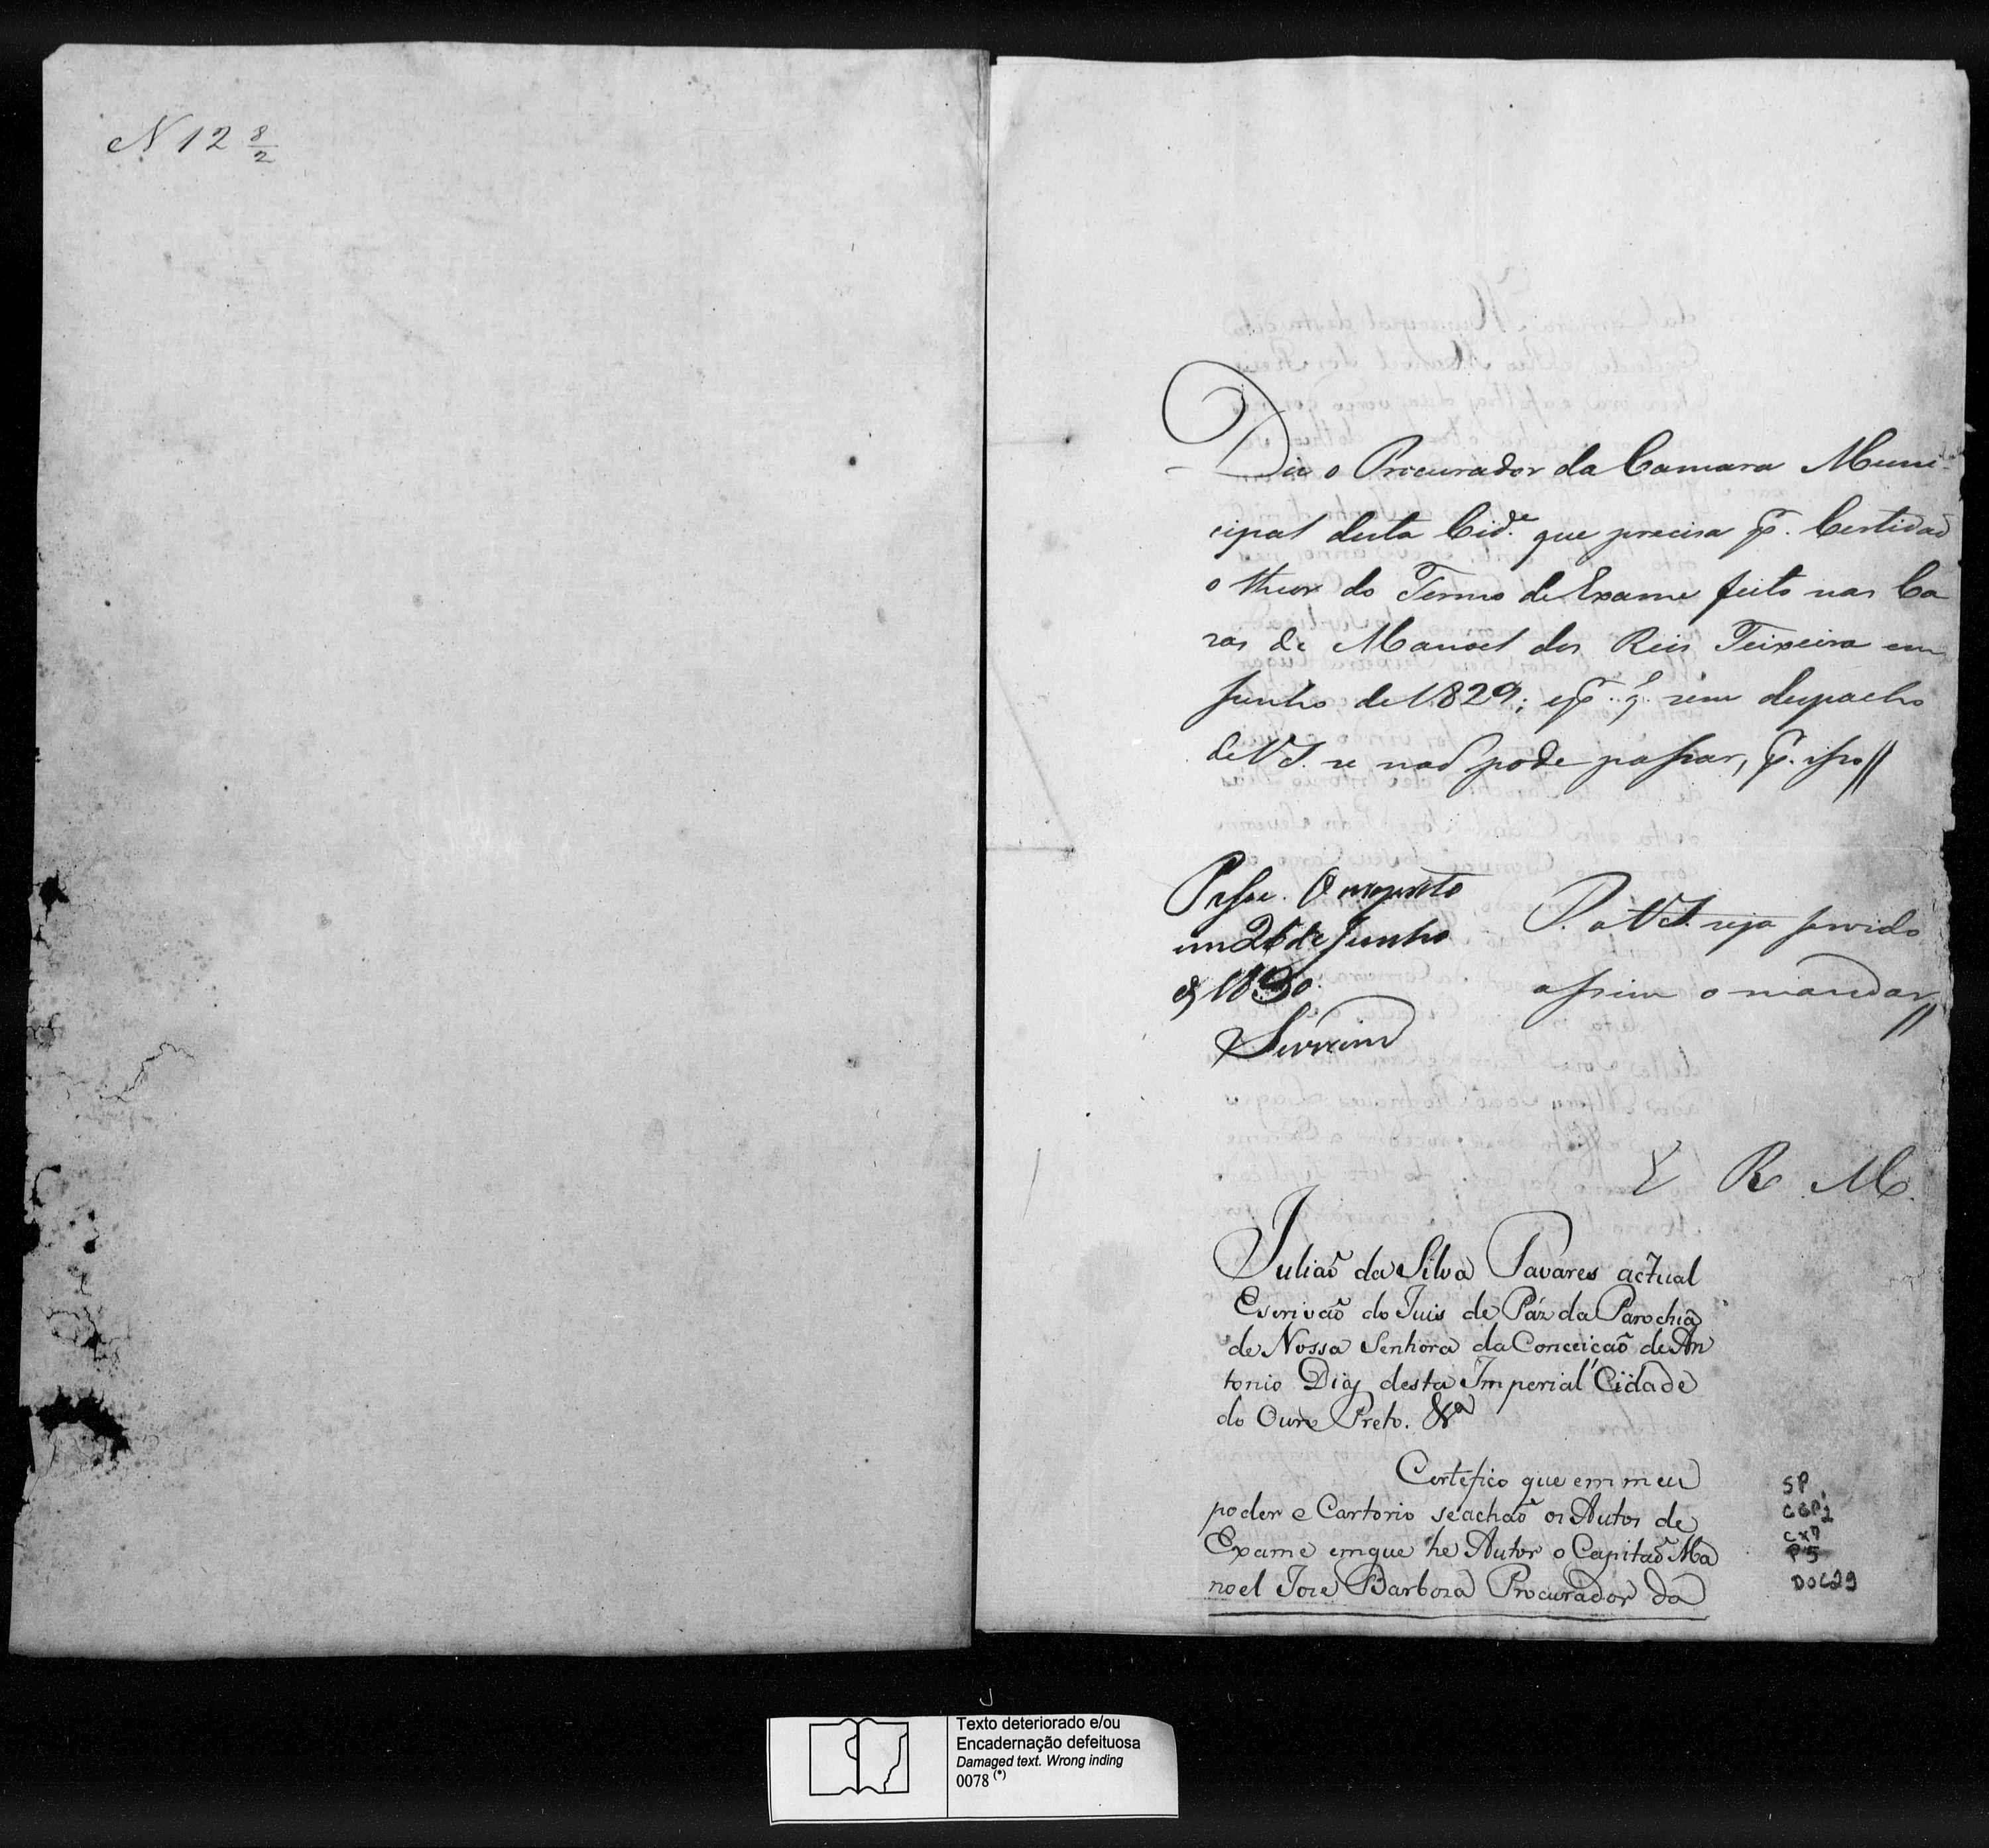 N 12 8/2
Diz o Procurador da Camara Muni-
cipal desta Cid.e que precisa p.r Certidaõ
o theor do Termo de Exame feito nas Ca
zas de Manoel dos Reis Teixeira em
Junho de 1829; e p.r q. sem despacho
de V S. se naõ pode passar, p.r isso //
Passe. Ouropreto
em 26 de Junho
de 1830.
P. a V S. seja servido
assim o mandar //
E R M.
Juliaõ da Silva Tavares actual
Escrivaõ do Juis de Páz da Parochia
de Nossa Senhora da Conceiçaõ de An
tonio Dias desta Imperial Cidade
do Ouro Preto. &a
Certefico que em meu
poder e Cartorio se achaõ os Autos de
Exame em que he Autor o Capitaõ Ma
noel Joze Barboza Procurador da
SP,
CGP1
CX7
P5
DOC29
Texto deteriorado e/ou
Encadernação defeituosa
Damaged text. Wrong inding
0078 (*)